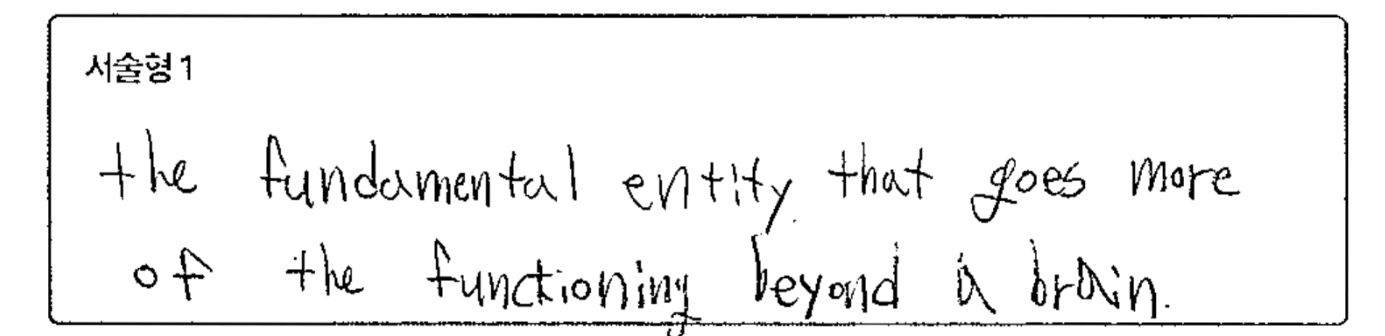 서술형 1
the fundamental entity that goes more
of the functioning beyond a brain.